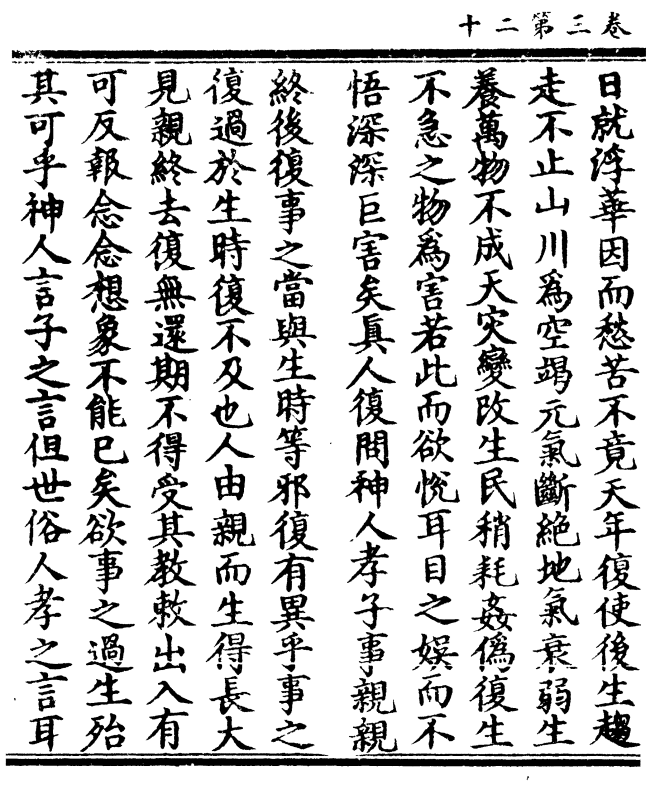 卷三第二十
日就浮華因而愁苦不竟天年復使後生趨
走不止山川爲空竭元氣斷絕地氣衰弱生
養萬物不成天灾變改生民稍耗姦僞復生
不急之物爲害若此而欲悅耳目之娛而不
悟深深巨害矣眞人復問神人孝子事親親
終後復事之當與生時等邪復有異乎事之
復過於生時復不及也人由親而生得長大
見親終去復無還期不得受其教敕出入有
可反報念念想象不能已矣欲事之過生殆
其可乎神人言子之言但世俗人孝之言耳